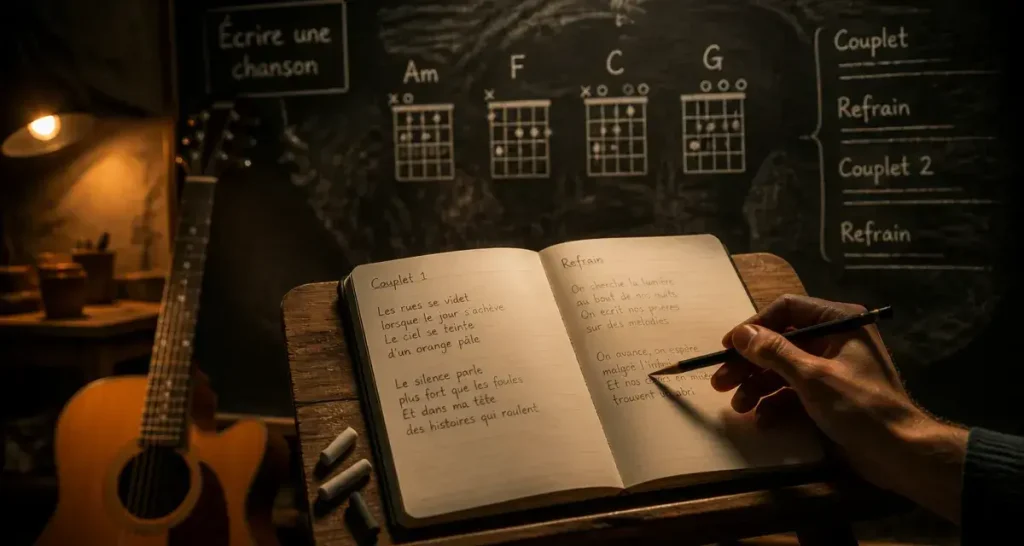 Écrire une
chanson
Am
F
C
G
Couplet
Refrain
Couplet 2
Refrain
Couplet 1
Les rues se videt
lorsque le jour s'achève
Le ciel se teinte
d'un orange pâle
Le silence parle
plus fort que les foules
Et dans ma tête
des histoires qui roulent
Refrain
On cherche la lumière
au bout de nos nuits
On ecrit nos prières
sur des mélodies
On avance, on espère
malgré
Et nos en
trouvent